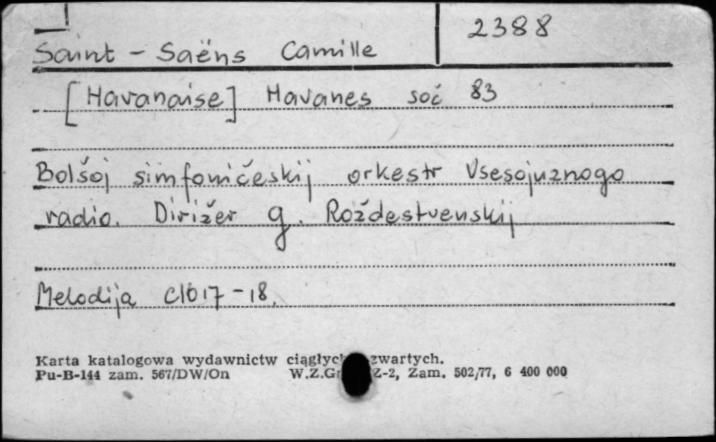 2388
Saint-Saëns Camille
[Havanaise] Havanes soč 83
Bolšoj simfoničeskij orkestr Vsesojuznogo
radio. Dirižer g. Roždestvenskij
Melodija C1017-18.
Karta katalogowa wydawnictw ciągłych zwartych.
Pu-B-144 zam. 567/DW/On W.Z.Gr Z-2, Zam. 502/77, 6 400 000